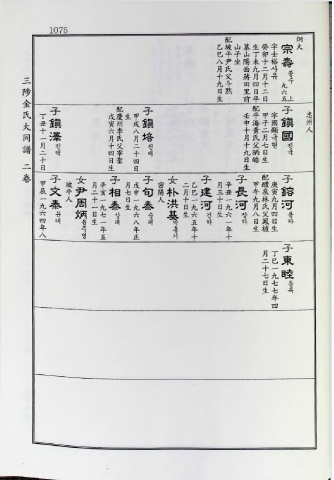 1075
三陟金氏大同譜 二卷
烱文
宗壽 종수 九六五上
字士裕사유
癸卯十二月十二日
生丁未九月四日卒
墓山陽面蔣田里前
山子坐
配坡平尹氏父斗燃
乙巳八月十九日生
忠州人
子鎭國 진국
字國顯국현
甲子二月七日生
配平海黃氏父炳皓
壬申十月十九日生
子鎔河 용하
庚寅九月四日生
配醴泉林氏父鳳植
甲午九月八日生
子東睦 동목
丁巳一九七七年四
月二十七日生
子長河 장하
辛丑一九六一年十
月三十日生
子建河 건하
乙巳一九六五年十
二月二日生
女朴洪基 박홍기
密陽人
子鎭培 진배
甲戌八月二十四日
生
配慶州李氏父宰奎
戊寅六月十四日生
子旬泰 순태
戊申一九六八年正
月七日生
子相泰 상태
辛亥一九七一年五
月二十一日生
女尹周炳 윤주병
坡平人
子鎭澤 진택
丁丑十一月二十日
子文泰 문태
甲辰一九六四年八